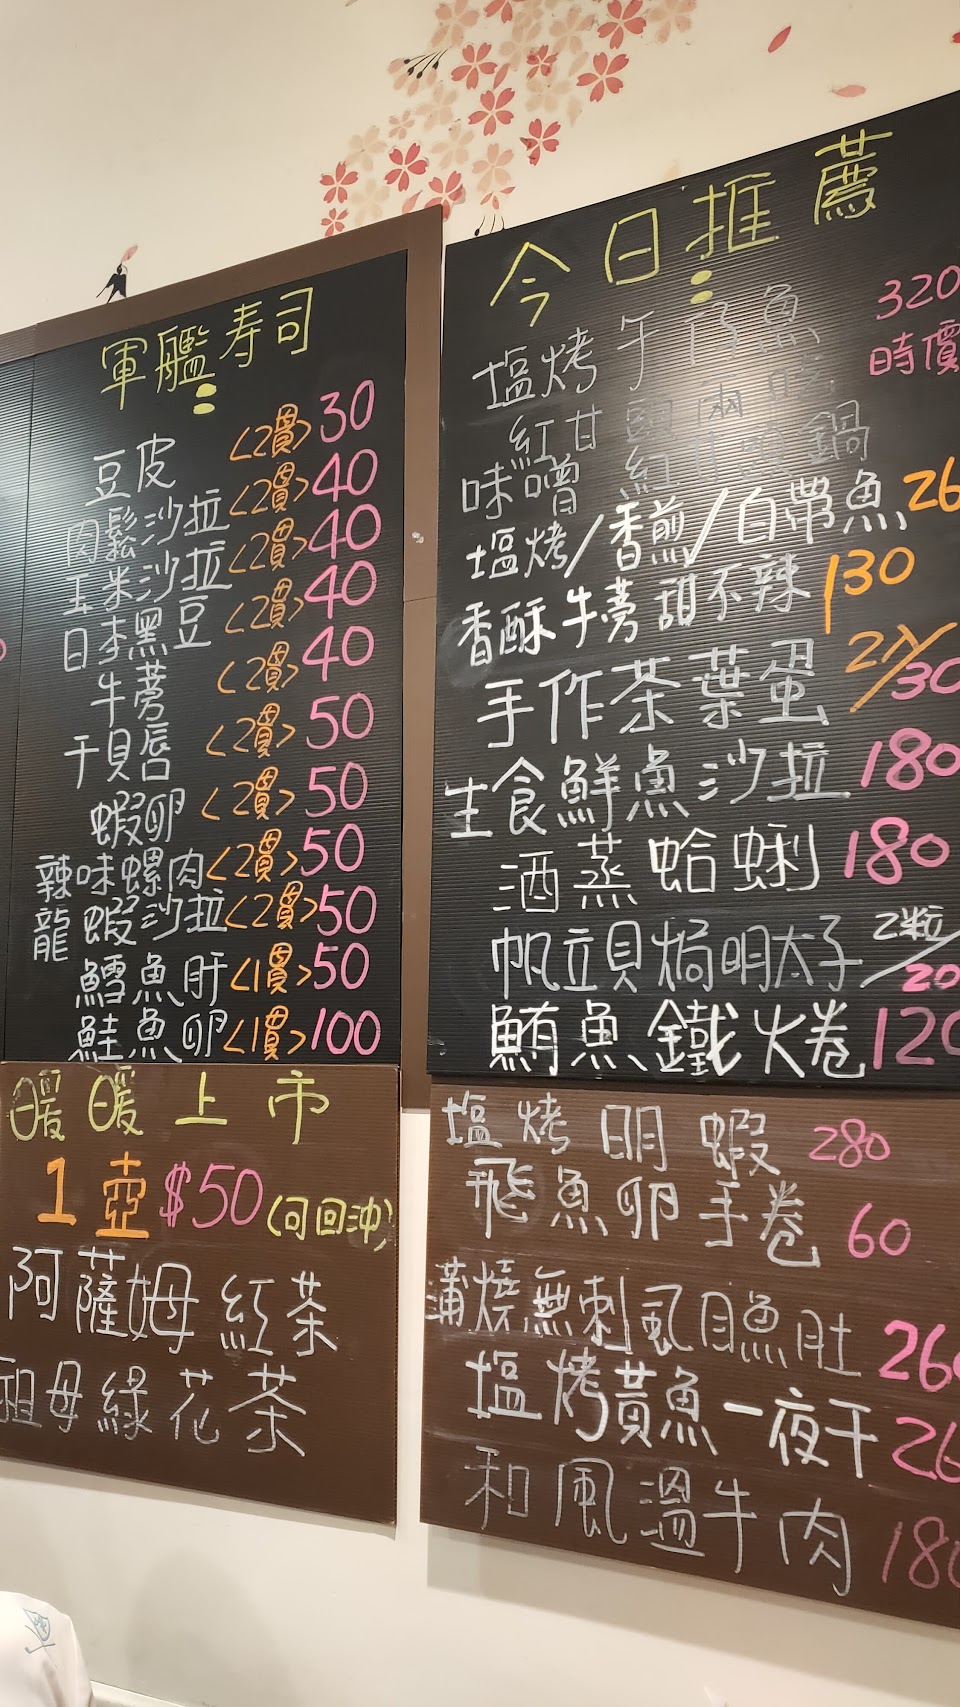 軍艦寿司
豆皮 <2貫> 30
肉鬆沙拉 <2貫> 40
玉米沙拉 <2貫> 40
日本黑豆 <2貫> 40
牛蒡 <2貫> 40
干貝唇 <2貫> 50
蝦卵 <2貫> 50
辣味螺肉 <2貫> 50
龍蝦沙拉 <2貫> 50
鱈魚肝 <1貫> 50
鮭魚卵 <1貫> 100
暖暖上市
1壺 $50 (可回沖)
阿薩姆紅茶
祖母綠花茶
今日推薦
塩烤午仔魚 320
紅甘 時價
味噌 鍋
塩烤/香煎/白帶魚 26
香酥牛蒡甜不辣 130
手作茶葉蛋 2入/30
生食鮮魚沙拉 180
酒蒸蛤蜊 180
帆立貝焗明太子 2粒/20
鮪魚鐵火卷 120
塩烤明蝦 280
飛魚卵手卷 60
蒲燒無刺虱目魚肚 260
塩烤黃魚一夜干 26
和風溫牛肉 180